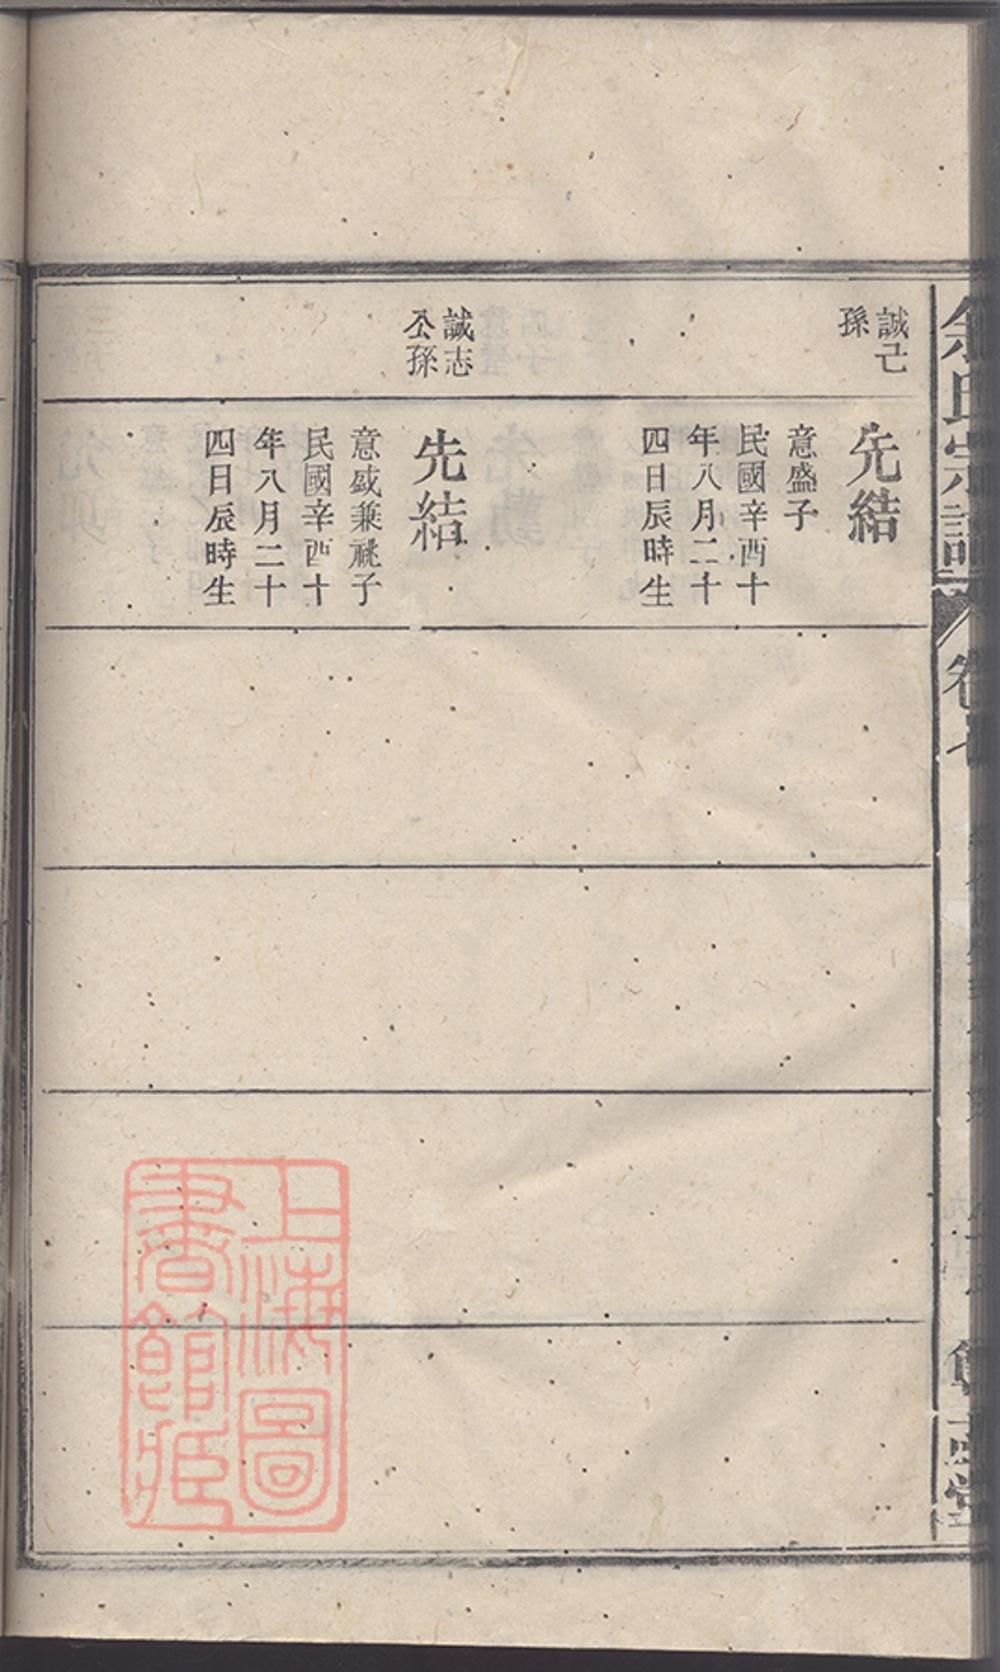 余氏宗譜
卷七
誠己
孫
先結
意盛子
民國辛酉十
年八月二十
四日辰時生
誠志
公孫
先結
意盛兼祧子
民國辛酉十
年八月二十
四日辰時生
上海圖
書館藏